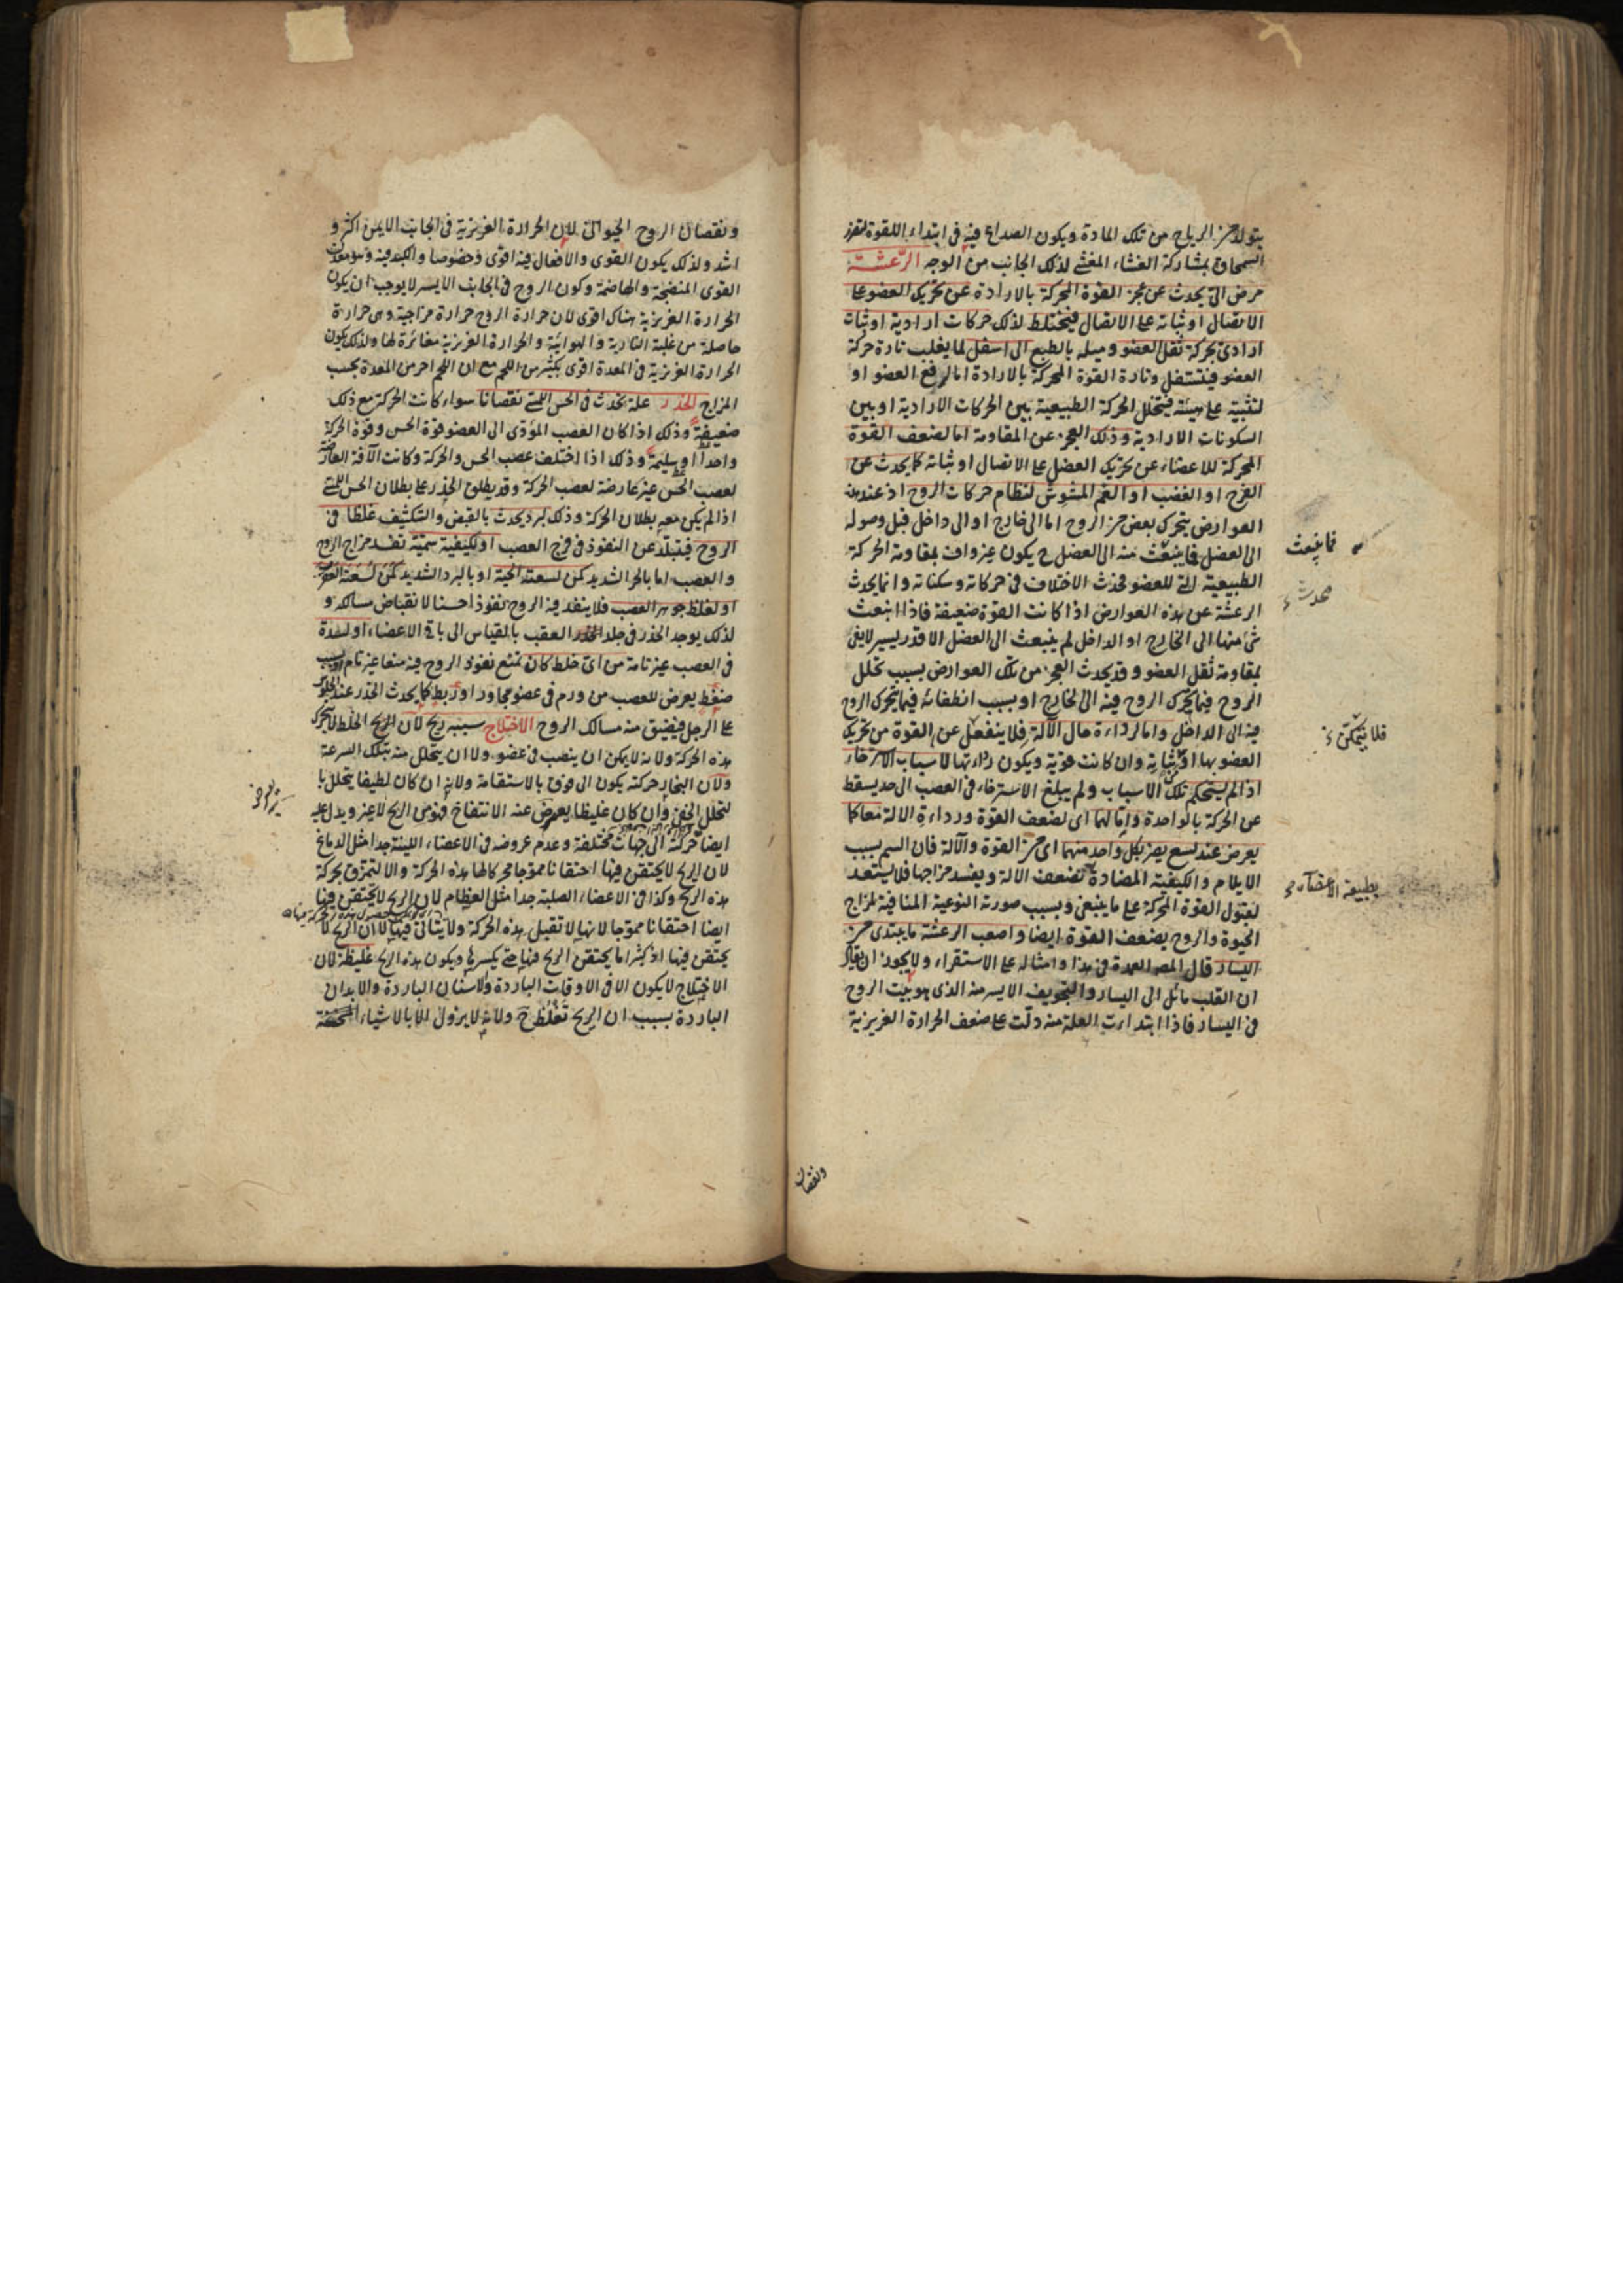 يتولد من الرياح من تلك المادة ويكون الصداع فيه فى ابتداء اللقوة لتفرز
السمحاق بمشاركة الغشاء المغشى لذلك الجانب من الوجه الرعشة
مرض الى يحدث عن عجز القوة المحركة بالارادة عن تحريك العضو على
الاتصال او ثباته على الاتصال فيختلط لذلك حركات ارادية او ثبات
ارادى بحركة ثقل العضو وميله بالطبع الى اسفل لما يغلب تارة حركة
العضو فيتسفل وتارة القوة المحركة بالارادة اما لرفع العضو او
لتثبيته على هيئة فيتخلل الحركة الطبيعية بين الحركات الارادية او بين
السكونات الارادية وذلك العجز عن المقاومة اما لضعف القوة
المحركة للاعضاء عن تحريك العضل على الاتصال او ثباته كما يحدث عن
الفرح او الغضب او الغم المشوش لنظام حركات الروح اذ عند هذه
العوارض يتحرك بعض من الروح اما الى خارج او الى داخل قبل وصوله
الى العضل فما ينبعث منه الى العضل ح يكون غير واف بمقاومة الحركة
الطبيعية التى للعضو فحدث الاختلاف فى حركاته وسكناته وانما يحدث
الرعشة عن هذه العوارض اذا كانت القوة ضعيفة فاذا انبعث
شئ منها الى الخارج او الداخل لم ينبعث الى العضل الا قدر يسير لا يفى
بمقاومة ثقل العضو وقد يحدث العجز من تلك العوارض بسبب تحلل
الروح فيما يتحرك الروح فيه الى خارج او بسبب انطفائه فيما يتحرك الروح
فيه الى الداخل واما لرداءة حال الآلة فلا ينفعل عن القوة من تحريك
العضو بها او ثباته وان كانت قوية ويكون رداءتها لاسباب الاسترخاء
اذ لم يستحكم تلك الاسباب ولم يبلغ الاسترخاء فى العصب الى حد يسقط
عن الحركة بالواحدة واما لهما اى لضعف القوة ورداءة الالة معا كما
يعرض عند لسع يضر بكل واحد منهما اى من القوة والآلة فان السم بسبب
الايلام والكيفية المضادة تضعف الالة ويفسد مزاجها فلا يستعد
لقبول القوة المحركة على ما ينبغى وبسبب صورته النوعية المنافية لمزاج
الحيوة والروح يضعف القوة ايضا واصعب الرعشة ما يبتدى من
اليسار قال المص العمدة فى هذا وامثاله على الاستقراء ولا يجوز ان يقال
ان القلب مائل الى اليسار والتجويف الايسر منه الذى هو بيت الروح
فى اليسار فاذا ابتدأت العلة منه دلت على ضعف الحرارة الغريزية
فما ينبعث
يحدث
فلا يتمكن
بطبيعة الاعضاء
ونقصان
ونقصان الروح الحيوانى لان الحرارة الغريزية فى الجانب الايمن اكثر و
اشد ولذلك يكون القوى والافعال فيه اقوى وخصوصا والكبد فيه وهو معدن
القوى المنضجة والهاضمة وكون الروح فى الجانب الايسر لا يوجب ان يكون
الحرارة الغريزية هناك اقوى لان حرارة الروح حرارة مزاجية وهى حرارة
حاصلة من غلبة النارية والهوائية والحرارة الغريزية مغائرة لها ولذلك يكون
الحرارة الغريزية فى المعدة اقوى بكثير من اللحم مع ان اللحم احر من المعدة بحسب
المزاج الخدر علة تحدث فى الحس اللمسى نقصانا سواء كانت الحركة مع ذلك
ضعيفة وذلك اذا كان العصب المؤدى الى العضو قوة الحس وقوة الحركة
واحدا او سليمة وذلك اذا اختلف عصب الحس والحركة وكانت الآفة العارضة
لعصب الحس غير عارضة لعصب الحركة وقد يطلق الخدر على بطلان الحس اللمسى
اذا لم يكن معه بطلان الحركة وذلك لبرد يحدث بالقبض والتكثيف غلظا فى
الروح فيتبلد عن النفوذ فى فرج العصب او لكيفية سمية تفسد مزاج الروح
والعصب اما بالحر الشديد كمن لسعته الحية او بالبرد الشديد كمن لسعته العقرب
او لغلظ جوهر العصب فلا ينفذ فيه الروح نفوذا حسنا لانقباض مسالكه و
لذلك يوجد الخدر فى جلد العقب بالقياس الى باقى الاعضاء او لسدة
فى العصب غير تامة من اى خلط كان تمنع نفوذ الروح فيه منعا غير تام او بسبب
ضغط يعرض للعصب من ورم فى عضو مجاور او ربط كما يحدث الخدر عند الجلوس
على الرجل فيضيق منه مسالك الروح الاختلاج سببه ريح لان الخلط لا يتحرك
هذه الحركة ولانه لا يمكن ان ينصب فى عضو ولا ان يتحلل منه بتلك السرعة
ولان البخار حركته يكون الى فوق بالاستقامة ولانه ان كان لطيفا يتحلل با
لتحلل الخفى وان كان غليظا يعرض عنه الانتفاخ فهو من الريح لا غير ويدل عليه
ايضا حركته الى جهات مختلفة وعدم عروضه فى الاعضاء اللينة جدا مثل الدماغ
لان الريح لا يحتقن فيها احتقانا مموجا محركا لها هذه الحركة والا لتمزق بحركة
هذه الريح وكذا فى الاعضاء الصلبة جدا مثل العظام لان الريح لا يحتقن فيها
ايضا احتقانا مموجا لانها لا تقبل هذه الحركة ولا يتأتى فيها لان الريح لا
يحتقن فيها اذ كثيرا ما يحتقن الريح فيها حتى يكسرها ويكون هذه الريح غليظة لان
الاختلاج لا يكون الا فى الاوقات الباردة والاسنان الباردة والابدان
الباردة بسبب ان الريح تغلظ ح ولانه لا يزول الا بالاشياء